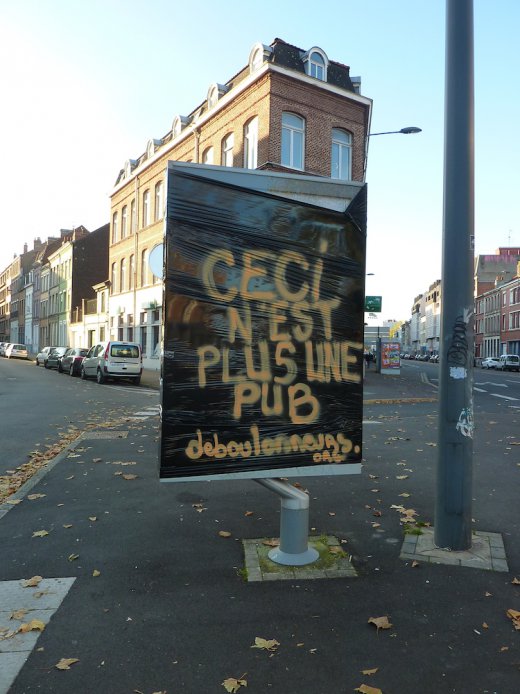 CECI
N'EST
PLUS UNE
PUB
deboulonneurs.
org